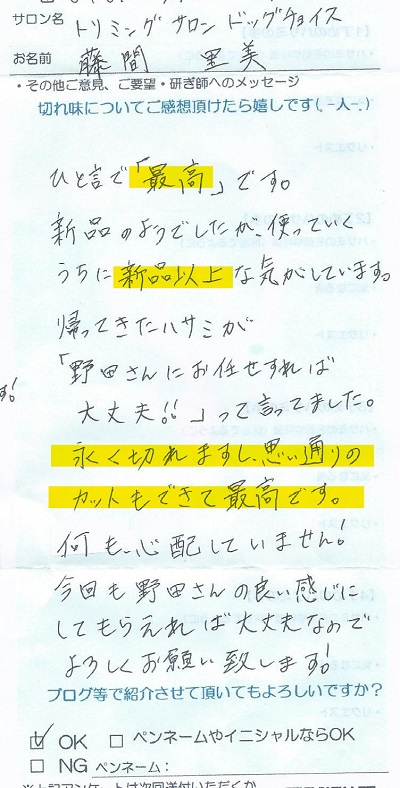 サロン名 トリミングサロン ドッグチョイス
お名前 藤間 里美
・その他ご意見、ご要望・研ぎ師へのメッセージ
切れ味についてご感想頂けたら嬉しです(.-人-.)
ひと言で「最高」です。
新品のようでしたが、使っていく
うちに新品以上な気がしています。
帰ってきたハサミが
「野田さんにお任せすれば
大丈夫!!」って言ってました。
永く切れますし、思い通りの
カットもできて最高です。
何も心配していません。
今回も野田さんの良い感じに
してもらえれば大丈夫なので
よろしくお願い致します!
ブログ等で紹介させて頂いてもよろしいですか?
☑ OK □ ペンネームやイニシャルならOK
□ NG ペンネーム: